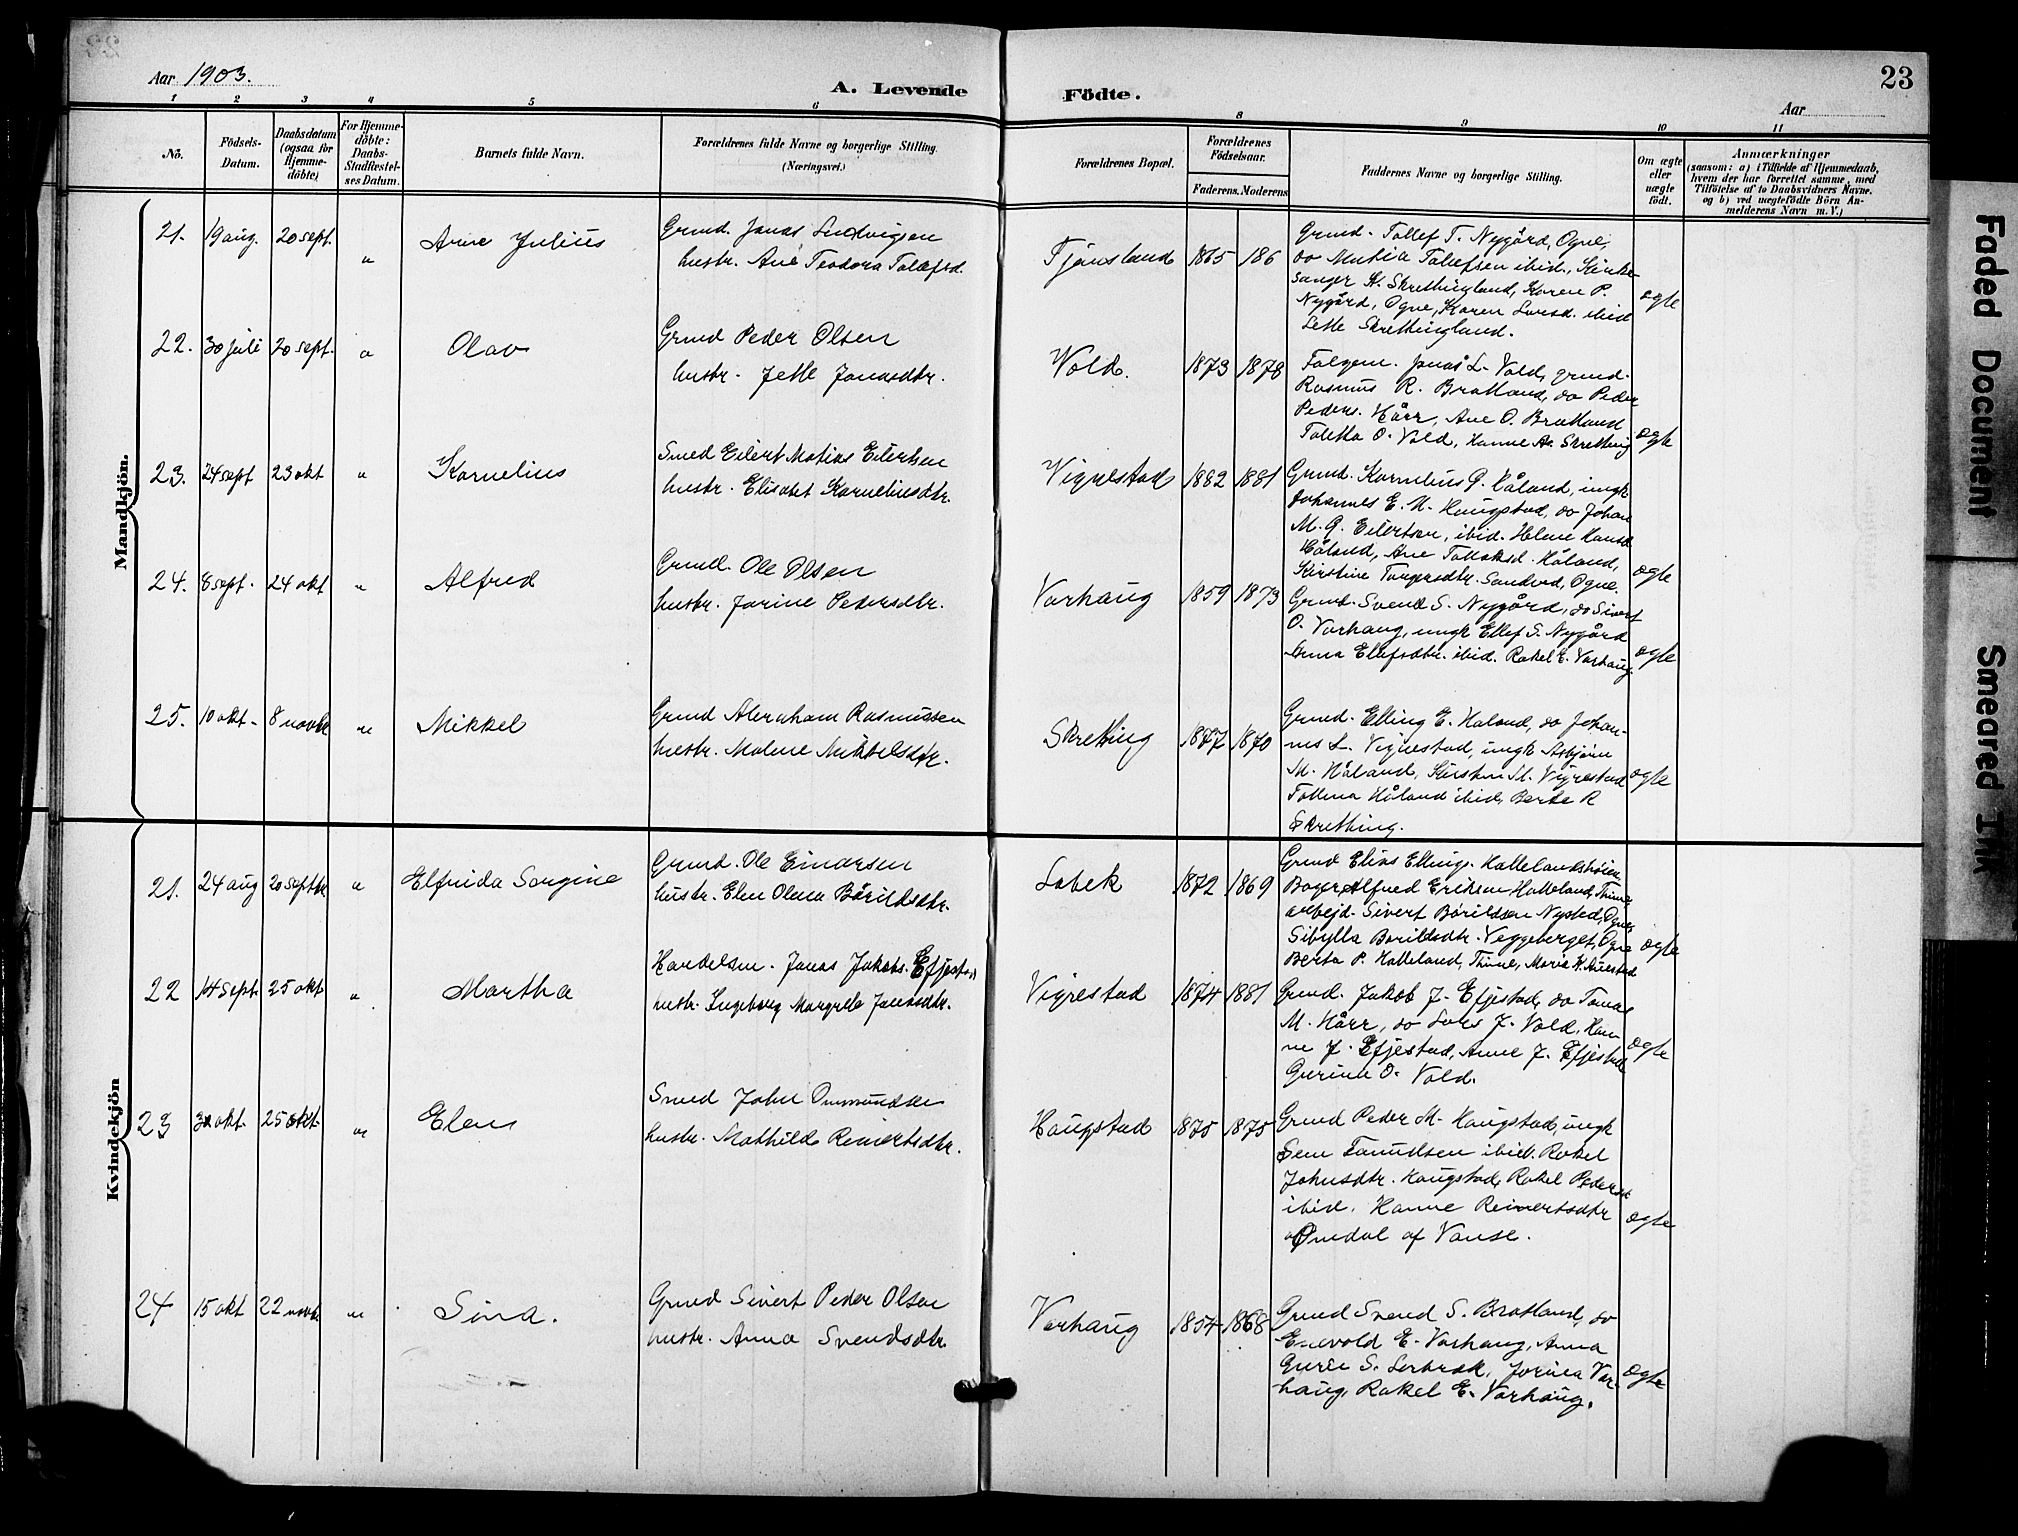 Aar 1903.
A. Levende Födte.
Aar
23
1 2 3 4 5 6 8 9 10 11
No.
Födsels-Datum.
Daabsdatum (ogsaa for Hjemme-döbte)
For Hjemme-döbte: Daabs-Stadfæstel-ses Datum.
Barnets fulde Navn.
Forældrenes fulde Navne og borgerlige Stilling. (Næringsvei.)
Forældrenes Bopæl.
Forældrenes Födselsaar.
Faderens. Moderens
Faddernes Navne og borgerlige Stilling.
Om ægte eller uægte födt.
Anmærkninger
(saasom: a) i Tilfælde af Hjemmedaab,
hvem der har forrettet samme, med
Tilföielse af to Daabsvidners Navne.
og b) ved uægtefödte Börn An-
melderens Navn m. V.)
Mandkjön.
21. 19 aug. 20 sept. " Arne Julius
Grmd. Jonas Ludvigsen
hustr. Ane Teodora Tolefsd.
Tjånsland 1865 186
Grmd. Tollef T. Nygård, Ogne,
do Mathia Tollefsen ibid., Kirke-
sanger K. Skretthingland, Karen P.
Nygård, Ogne, Karen Larsd. ibid
Lette Skrettingland.
ægte
22. 30 juli 20 sept. " Olav
Grmd Peder Olsen
hustr. Jette Jonasdtr.
Vold. 1873 1878
Folgem. Jonas L. Vold, grmd.
Rasmus R. Bratland, do Peder
Peders. Hårr, Ane O. Bratland
Toletta O. Vold, Hanne A. Skretting
ægte
23. 24 sept 23 okt " Kornelius
Smed Eilert Matias Eilertsen
hustr. Elisabet Korneliusdtr.
Vigrestad 1882 1881
Grmd. Kornelius G. Håland, ungk
Johannes E. M. Haugstad, do Johan
M. G. Eilertsen, ibid. Helene Hansd
Håland, Ane Tollaksd. Håland,
Kirstine Torgersdtr. Sandved, Ogne.
ægte
24. 8 sept. 24 okt " Alfred
Grmd. Ole Olsen
hustr. Jorine Pedersdtr.
Varhaug 1859 1873
Grmd. Svend S. Nygård, do Sivert
O. Varhaug, ungk Ellef S. Nygård
Anna Ellefsdtr. ibid. Rakel E. Varhaug
ægte
25. 10 okt. 8 novbr " Mikkel
Grmd Abraham Rasmussen
hustr. Malene Mikkelsdtr.
Skretting 1877 1870
Grmd. Elling E. Håland, do Johan-
nes L. Vigrestad, ungk Asbjørn
M. Håland, Kirsten M. Vigrestad
Tollena Håland ibid, Berte R
Skretting.
ægte
Kvindekjön
21. 24 aug 20 septbr. " Elfrida Sorgine
Grmd. Ole Einarsen
hustr. Elen Olena Bårildsdtr.
Lobek 1872 1869
Grmd Elias Ellings. Hallelandshöien
Bager Alfred Eriksen Halleland, Thime,
arbejd. Sivert Börildsen Nysted, Ogne,
Sibylla Börildsdtr. Veggeberget, Ogne
Berta P. Halleland, Thime, Maria K.
ægte
22 14 sept. 25 okt " Martha
Handelsm. Jonas Jakobs. Efjestad
hustr. Ingeborg Margrete Jonasdtr.
Vigrestad 1874 1881
Grmd. Jakob J. Efjestad, do Tomas
M. Hårr, do Lars J. Vold, Han-
ne J. Efjestad, Anne J. Efjestad
Gurine O. Vold.
ægte
23 3 okt. 25 oktr. " Elen
Smed John Ommundsen
hustr. Mathilde Reinertsdtr.
Haugstad 1875 1875
Grmd Peder M. Haugstad, ungk
Sem Tanudsen ibid. Rakel
Johnsdtr. Haugstad, Rakel Pedersd
ibid. Hanne Reinertsdtr
Omdal af Vanse.
ægte
24 15 okt 22 novbr " Sina.
Grmd Sivert Peder Olsen
hustr. Anna Svendsdtr.
Varhaug 1854 1868
Grmd Svend S. Bratland, do
Enevold E. Varhaug, Anna
Gurie S. Lerbrek, Jorina Var-
haug, Rakel E. Varhaug.
ægte
Faded Document
Smeared Ink